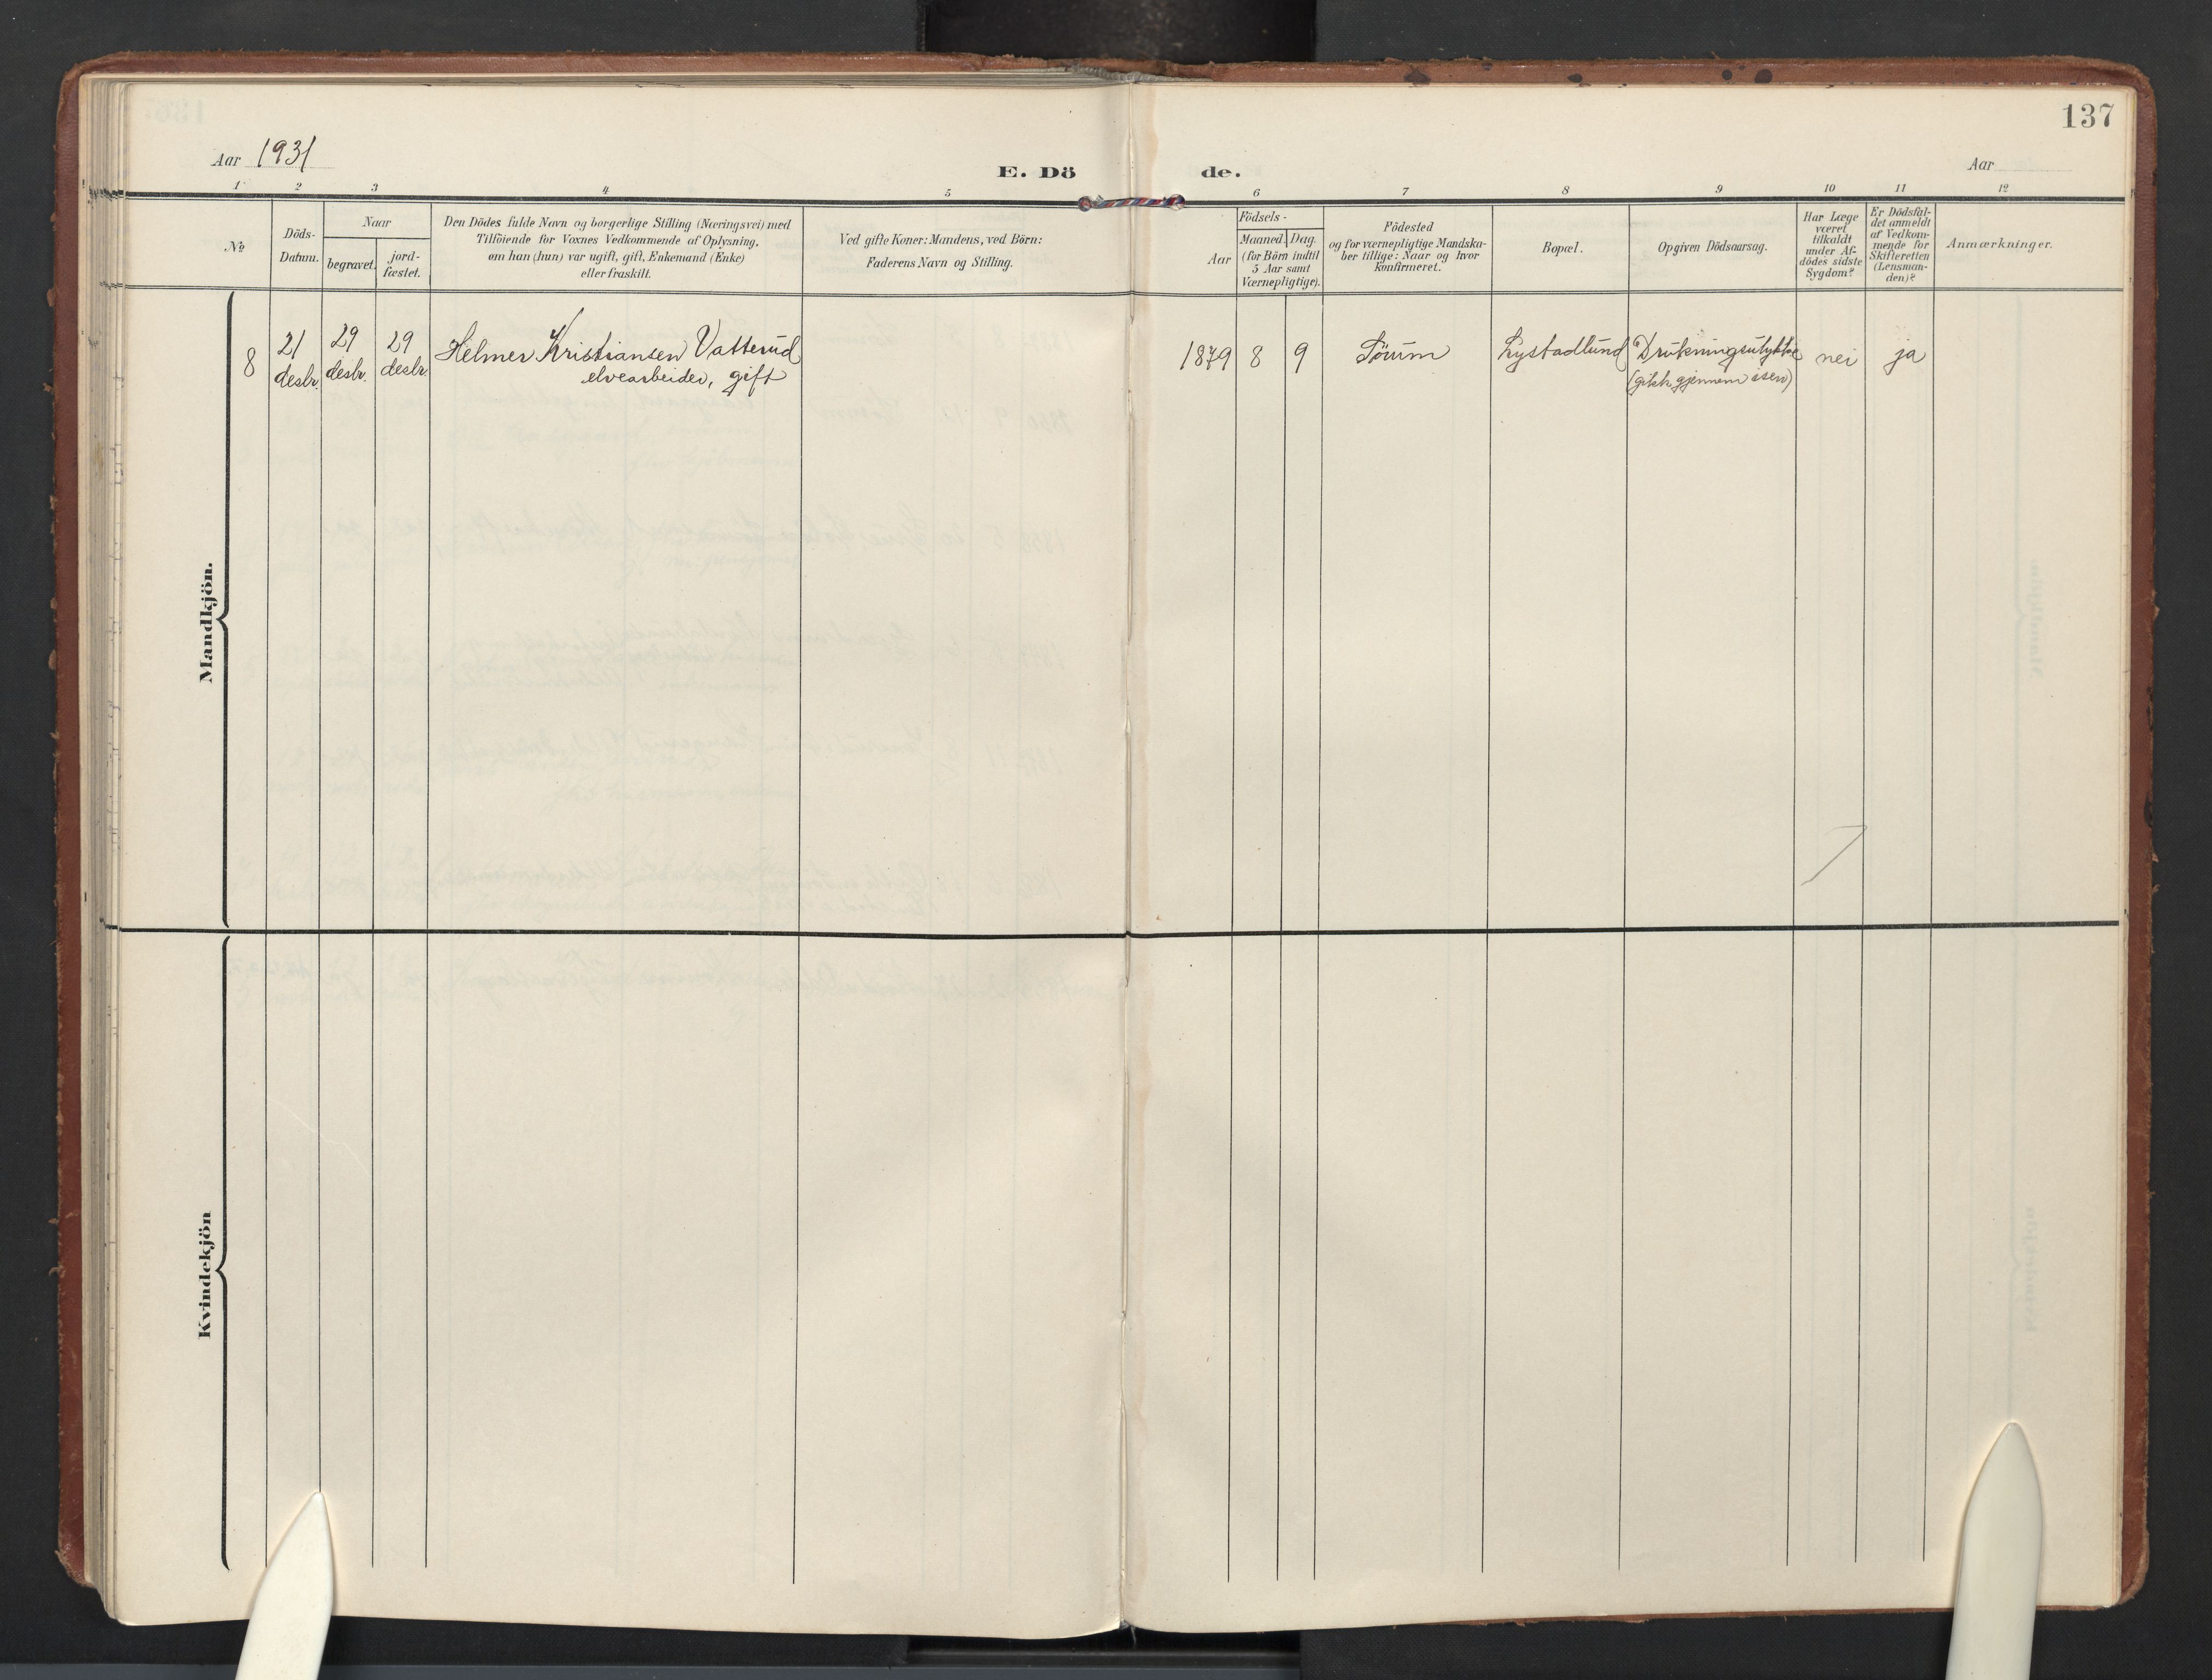 137
Aar 1931
E. Dö de.
Aar
1 2 3 4 5 6 7 8 9 10 11 12
No
Döds-
Datum.
Naar
begravet.
jord-
fæstet.
Den Dödes fulde Navn og borgerlige Stilling (Næringsvei) med
Tilföiende for Voxnes Vedkommende af Oplysning,
om han (hun) var ugift, gift, Enkemand (Enke)
eller fraskilt.
Ved gifte Koner: Mandens, ved Börn:
Faderens Navn og Stilling.
Födsels-
Aar
Maaned. Dag.
(for Börn indtil
5 Aar samt
Værnepligtige).
Födested
og for værnepligtige Mandska-
ber tillige: Naar og hvor
konfirmeret.
Bopæl.
Opgiven Dödsaarsag.
Har Læge
været
tilkaldt
under Af-
dödes sidste
Sygdom?
Er Dödsfal-
det anmeldt
af Vedkom-
mende for
Skifteretten
(Lensman-
den)?
Anmærkninger.
Mandkjön.
8
21
desbr.
29
desbr.
29
desbr.
Helmer Kristiansen Vatterud
elvearbeider, gift
1879 8 9
Sörum
Lystadlund
Drukningsulykke
(gikk gjennem isen)
nei
ja
Kvindekjön